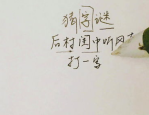 猜字谜
后村中听风
打一字